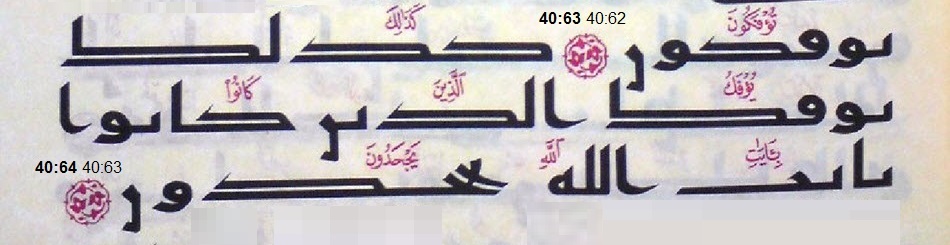 40:63 40:62
تُؤْفَكُونَ كَذَٰلِكَ
توفكون كذلك
يُؤْفَكُ ٱلَّذِينَ كَانُوا۟
يوفك الذين كانوا
بِـَٔايَٰتِ ٱللَّهِ يَجْحَدُونَ
بايت الله يجحدون
40:64 40:63